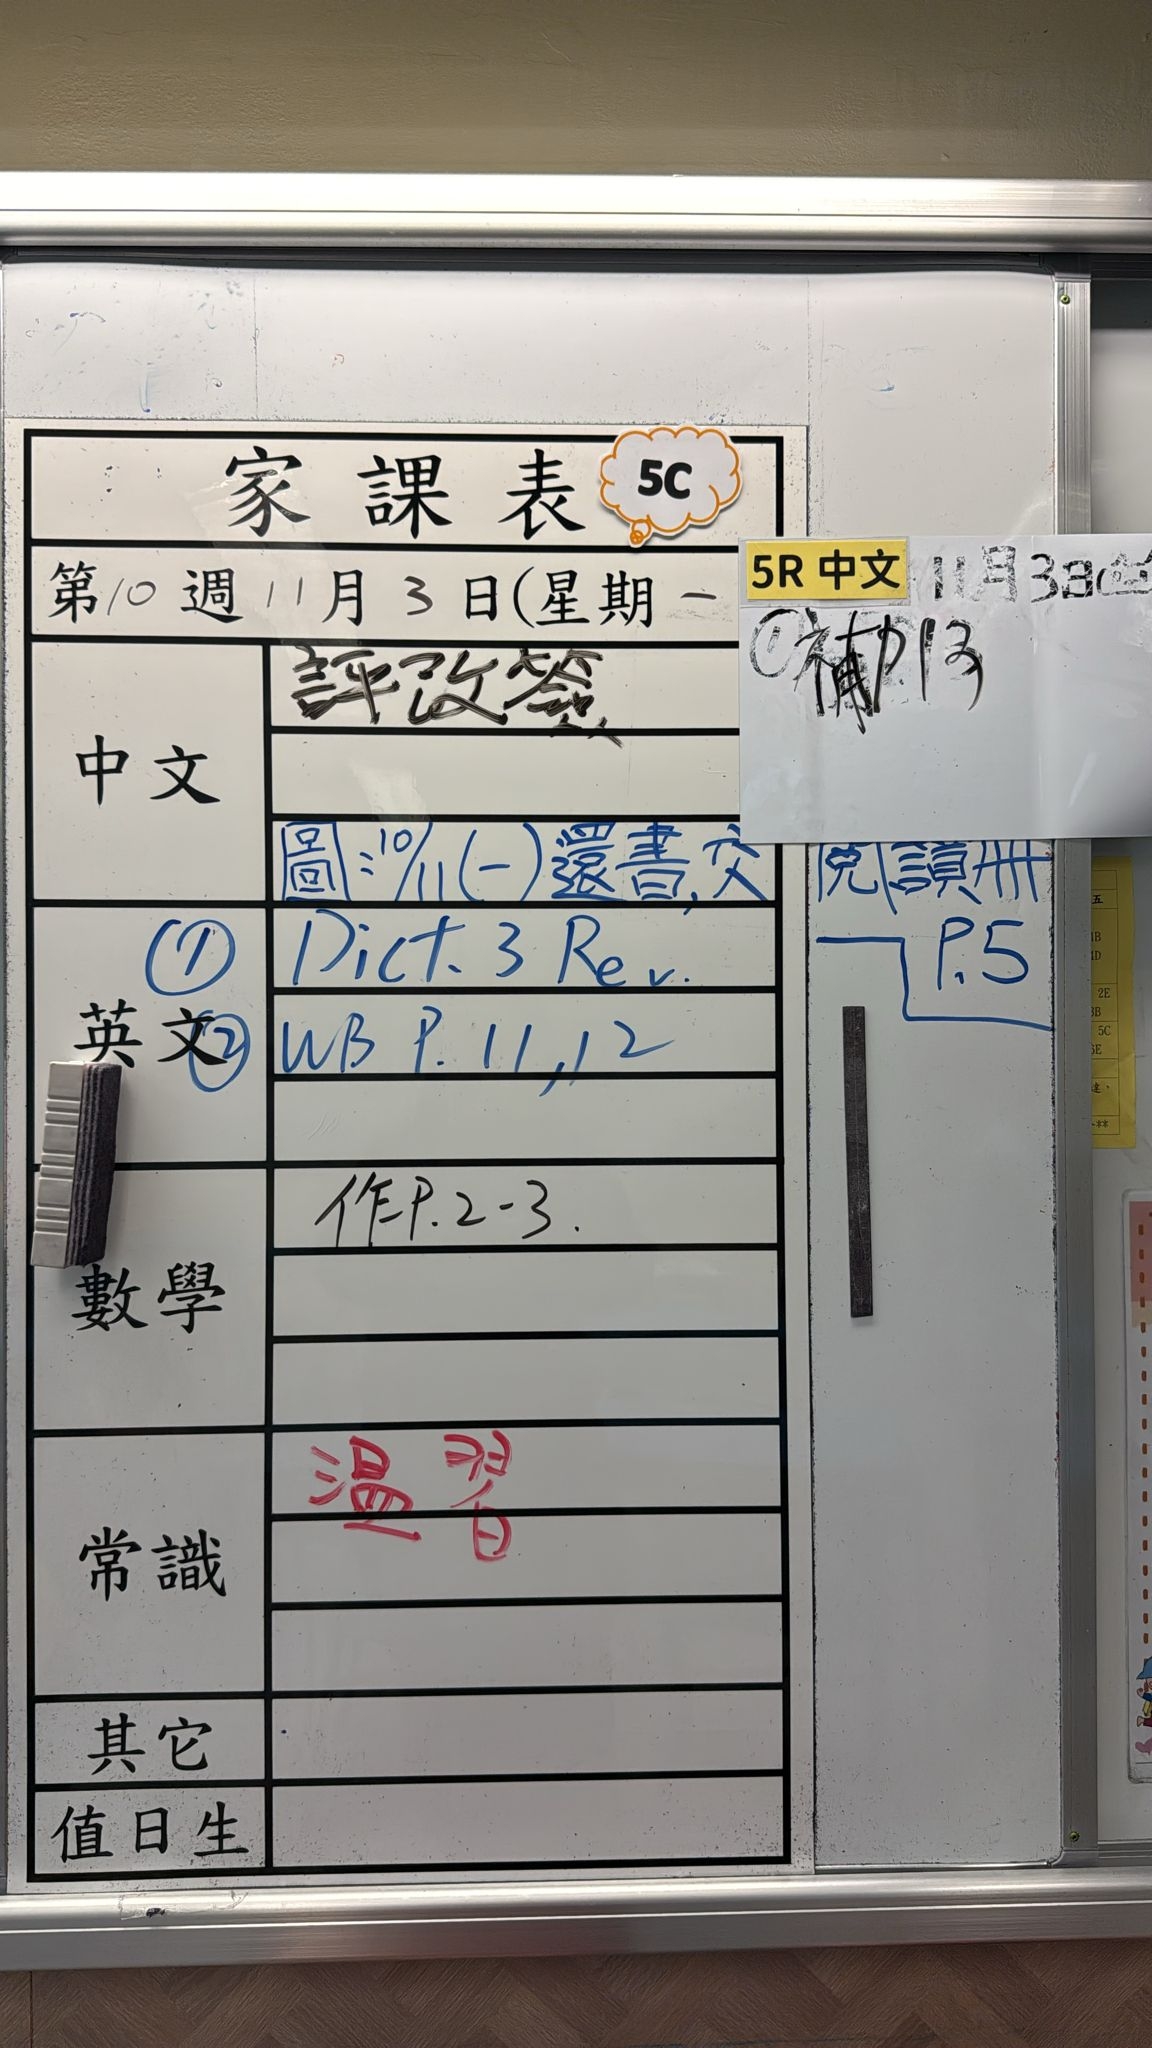 家課表 5C
第10週11月3日(星期一
5R 中文 11月3日(
① 補
中文
評改簽
圖:10/11(一)還書,交閱讀冊 P.5
英文
① Dict. 3 Rev.
② WB P. 11, 12
數學
作P.2-3.
常識
溫習
其它
值日生
五
2E
5C